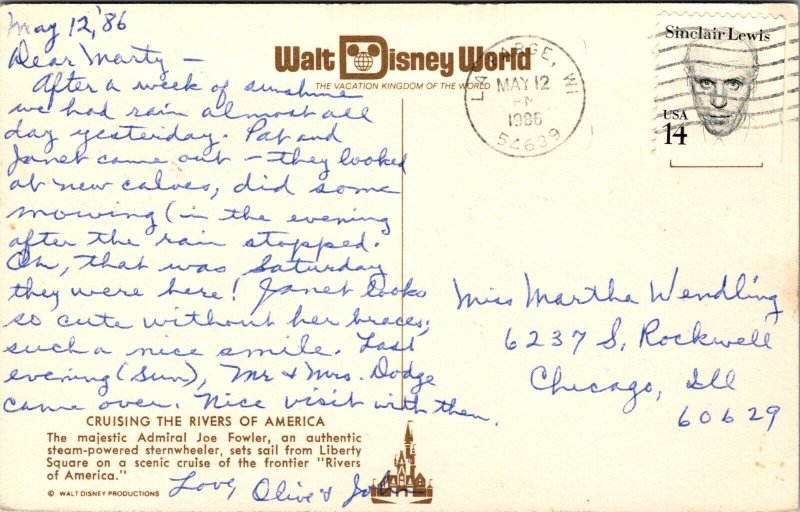 May 12,'86
Dear Marty –
After a week of sunshine
we had rain almost all
day yesterday. Pat and
Janet came out – they looked
at new calves, did some
mowing (in the evening
after the rain stopped.
Oh, that was Saturday
they were here! Janet looks
so cute without her braces;
such a nice smile. Last
evening (Sun), Mr & Mrs. Dodge
came over. Nice visit with them.
Love, Olive & John
Walt Disney World
THE VACATION KINGDOM OF THE WORLD
CRUISING THE RIVERS OF AMERICA
The majestic Admiral Joe Fowler, an authentic
steam-powered sternwheeler, sets sail from Liberty
Square on a scenic cruise of the frontier "Rivers
of America."
© WALT DISNEY PRODUCTIONS
Walt Disney World
LA FARGE, WI
MAY 12
PM
1986
54639
Sinclair Lewis
USA
14
Miss Martha Wendling
6237 S. Rockwell
Chicago, Ill
60629